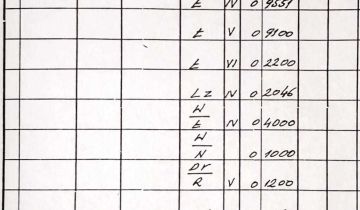 t IV 0 9551
t V 0 9100
t VI 0 2200
Lz IV 0 2046
W
t IV 0 4000
W
N 0 1000
Dr
R V 0 1200